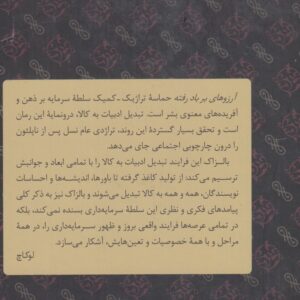 آرزوهای بر باد رفته حماسهٔ تراژیک - کمیک سلطهٔ سرمایه بر ذهن و
آفریده‌های معنوی بشر است. تبدیل ادبیات به کالا، درونمایهٔ این رمان
است و تحقق بسیار گستردهٔ این روند، تراژدی عام نسل پس از ناپلئون
را درون چارچوبی اجتماعی جای می‌دهد.
بالزاک این فرایند تبدیل ادبیات به کالا را با تمامی ابعاد و جوانبش
ترسیم می‌کند: از تولید کاغذ گرفته تا باورها، اندیشه‌ها و احساسات
نویسندگان، همه و همه به کالا تبدیل می‌شوند و بالزاک نیز به ذکر کلی
پیامدهای فکری و نظری این سلطهٔ سرمایه‌داری بسنده نمی‌کند، بلکه
در تمامی عرصه‌ها فرایند واقعی بروز و ظهور سرمایه‌داری را، در همهٔ
مراحل و با همهٔ خصوصیات و تعین‌هایش، آشکار می‌سازد.
لوکاچ